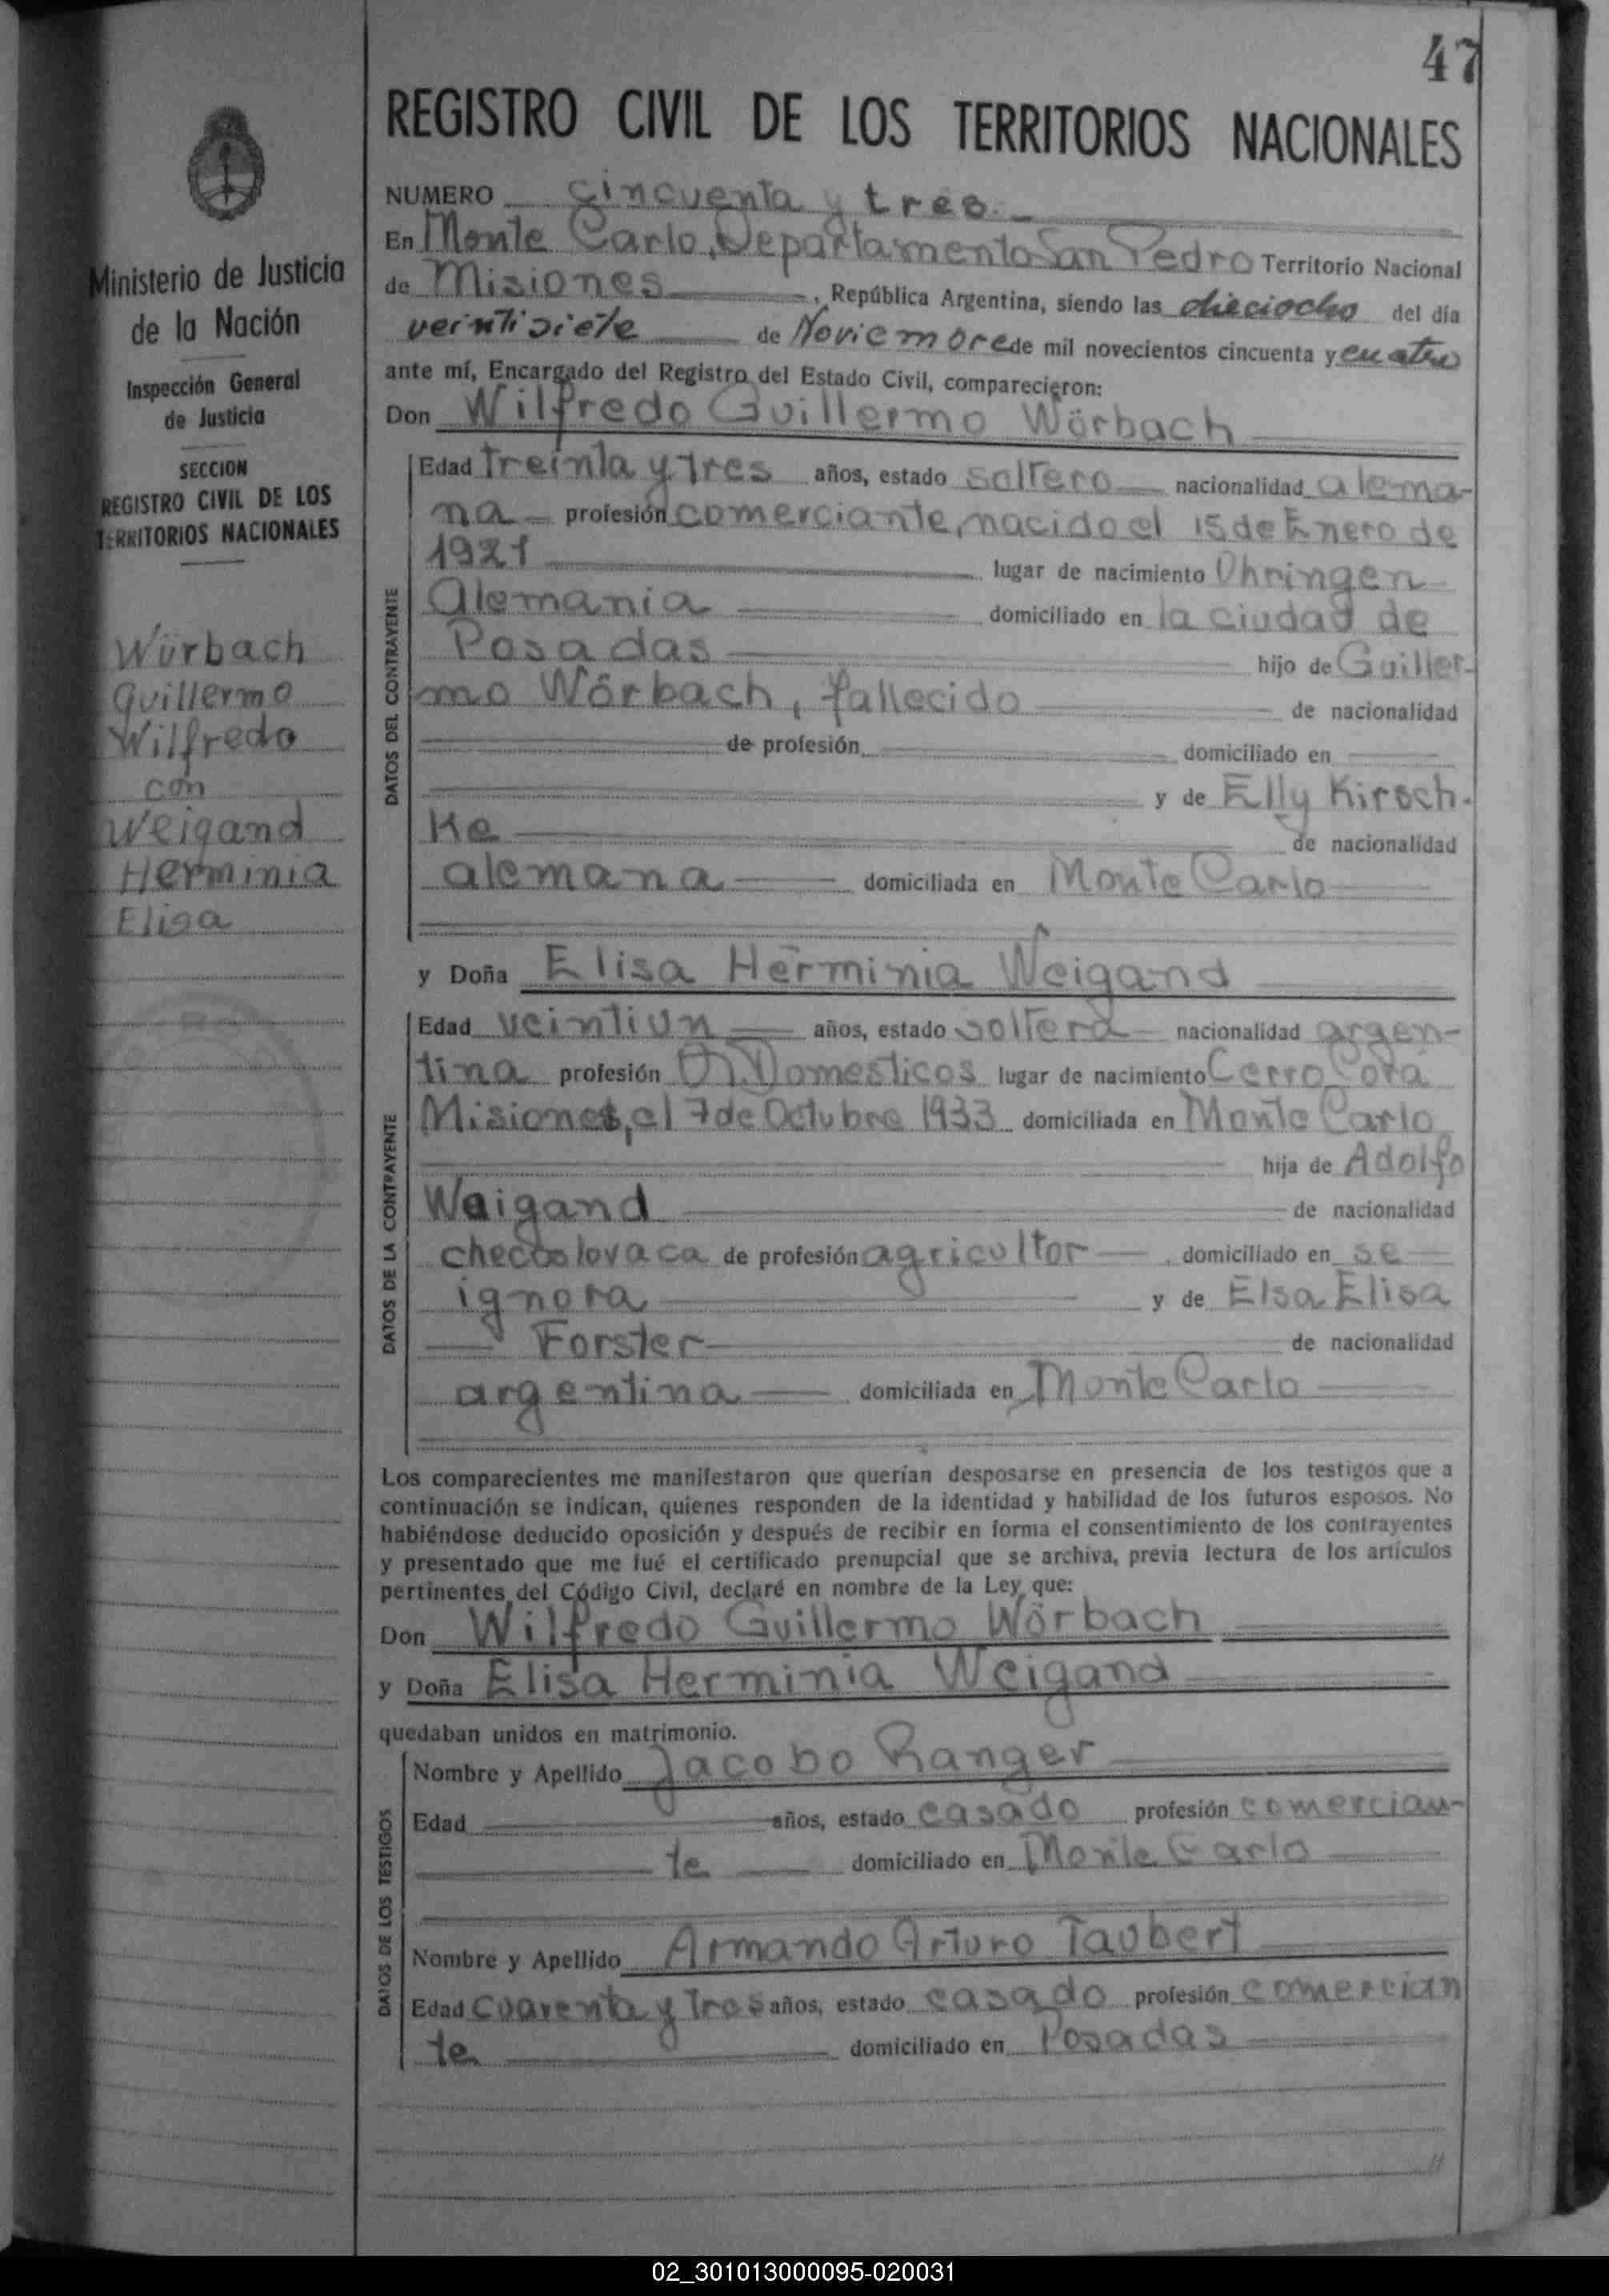 47
REGISTRO CIVIL DE LOS TERRITORIOS NACIONALES
Ministerio de Justicia
de la Nación
Inspección General
de Justicia
SECCION
REGISTRO CIVIL DE LOS
TERRITORIOS NACIONALES
Wörbach
Guillermo
Wilfredo
con
Weigand
Herminia
Elisa
NUMERO cincuenta y tres
En Monte Carlo, Departamento San Pedro Territorio Nacional
de Misiones, República Argentina, siendo las dieciocho del día
veintisiete de Noviembre de mil novecientos cincuenta y cuatro
ante mí, Encargado del Registro del Estado Civil, comparecieron:
Don Wilfredo Guillermo Wörbach
DATOS DEL CONTRAYENTE
Edad treinta y tres años, estado soltero nacionalidad alema-
na profesión comerciante, nacido el 15 de Enero de
1921 lugar de nacimiento Ohringen
Alemania domiciliado en la ciudad de
Posadas hijo de Guiller-
mo Wörbach, fallecido de nacionalidad
de profesión domiciliado en
y de Elly Kirsch-
ke de nacionalidad
alemana domiciliada en Monte Carlo
y Doña Elisa Herminia Weigand
DATOS DE LA CONTRAYENTE
Edad veintiun años, estado soltera nacionalidad argen-
tina profesión Q. Domesticos lugar de nacimiento Cerro Corá
Misiones, el 7 de Octubre 1933 domiciliada en Monte Carlo
hija de Adolfo
Weigand de nacionalidad
checoslovaca de profesión agricultor, domiciliado en se
ignora y de Elsa Elisa
Forster de nacionalidad
argentina domiciliada en Monte Carlo
Los comparecientes me manifestaron que querían desposarse en presencia de los testigos que a
continuación se indican, quienes responden de la identidad y habilidad de los futuros esposos. No
habiéndose deducido oposición y después de recibir en forma el consentimiento de los contrayentes
y presentado que me fué el certificado prenupcial que se archiva, previa lectura de los artículos
pertinentes del Código Civil, declaré en nombre de la Ley que:
Don Wilfredo Guillermo Wörbach
y Doña Elisa Herminia Weigand
quedaban unidos en matrimonio.
DATOS DE LOS TESTIGOS
Nombre y Apellido Jacobo Ranger
Edad años, estado casado profesión comercian-
te domiciliado en Monte Carlo
Nombre y Apellido Armando Arturo Taubert
Edad cuarenta y tres años, estado casado profesión comercian
te domiciliado en Posadas
02_301013000095-020031